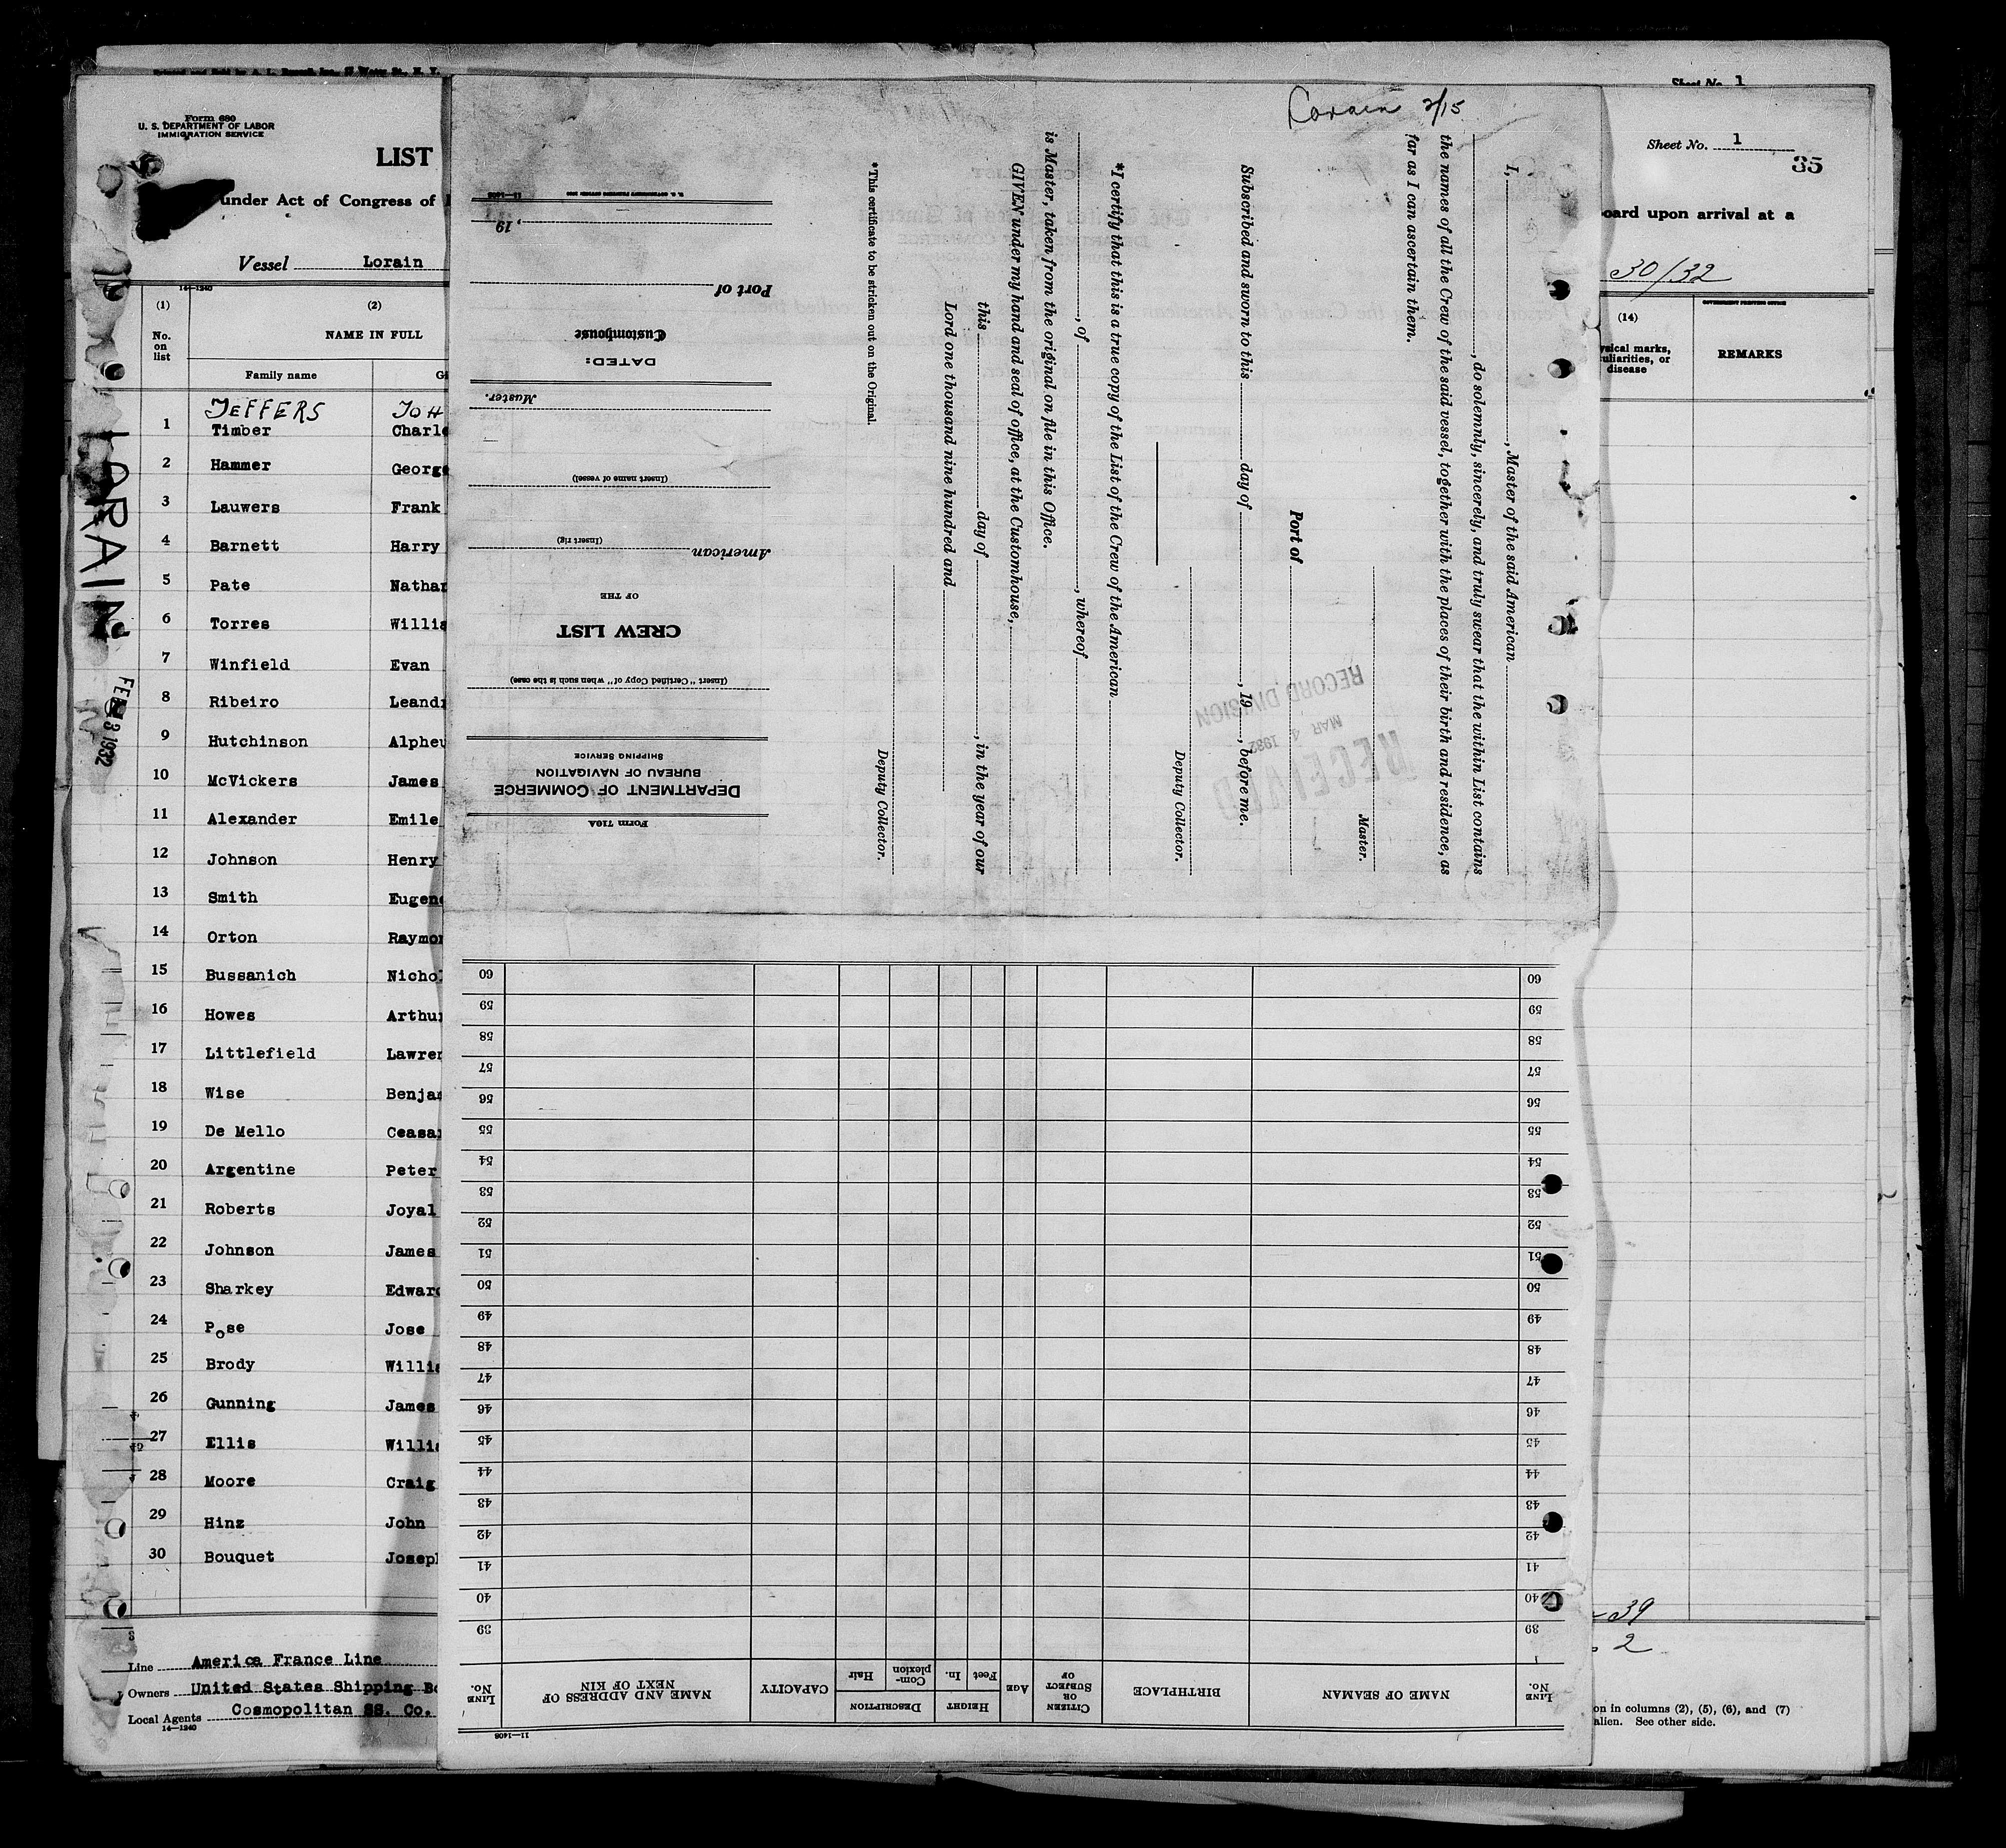 Sheet No. 1
Form 680
U. S. DEPARTMENT OF LABOR
IMMIGRATION SERVICE
LIST
under Act of Congress of
Vessel Lorain
14—1240
(1)
(2)
No.
on
list
NAME IN FULL
Family name
JEFFERS JOH
1 Timber Charle
2 Hammer George
3 Lauwers Frank
4 Barnett Harry
5 Pate Nathan
6 Torres Willia
7 Winfield Evan
8 Ribeiro Leand
9 Hutchinson Alpheu
10 McVickers James
11 Alexander Emile
12 Johnson Henry
13 Smith Eugene
14 Orton Raymon
15 Bussanich Nichol
16 Howes Arthur
17 Littlefield Lawren
18 Wise Benjam
19 De Mello Ceasar
20 Argentine Peter
21 Roberts Joyal
22 Johnson James
23 Sharkey Edward
24 Pose Jose
25 Brody Willia
26 Gunning James
27 Ellis Willia
28 Moore Craig
29 Hinz John
30 Bouquet Joseph
Line America France Line
Owners United States Shipping Bo
Local Agents Cosmopolitan SS. Co.
14—1240
LORAIN
FEB 13 1932
2/15
I, , Master of the said American
, do solemnly, sincerely, and truly swear that the within List contains
the names of all the Crew of the said vessel, together with the places of their birth and residence, as
far as I can ascertain them.
Master.
Port of
Subscribed and sworn to this day of , 19 , before me.
Deputy Collector.
*I certify that this is a true copy of the List of the Crew of the American
, of , whereof
is Master, taken from the original on file in this Office.
GIVEN under my hand and seal of office, at the Customhouse,
this day of , in the year of our
Lord one thousand nine hundred and
Deputy Collector.
*This certificate to be stricken out on the Original.
RECEIVED
MAR 4 1932
RECORD DIVISION
Form 710A
DEPARTMENT OF COMMERCE
BUREAU OF NAVIGATION
SHIPPING SERVICE
(Insert "Certified Copy of" when such is the case)
CREW LIST
OF THE
American
(Insert rig)
(Insert name of vessel)
Master.
DATED:
Customhouse
Port of
, 19
11—1408
LINE
No.
NAME OF SEAMAN
BIRTHPLACE
CITIZEN
OR
SUBJECT
OF
AGE
HEIGHT
Feet
In.
DESCRIPTION
Com-
plexion
Hair
CAPACITY
NAME AND ADDRESS OF
NEXT OF KIN
LINE
No.
39 39
40 40
41 41
42 42
43 43
44 44
45 45
46 46
47 47
48 48
49 49
50 50
51 51
52 52
53 53
54 54
55 55
56 56
57 57
58 58
59 59
60 60
11—1408
Sheet No. 1
35
board upon arrival at a
30/32
(14)
GOVERNMENT PRINTING OFFICE
ysical marks,
uliarities, or
disease
REMARKS
39
2
on in columns (2), (5), (6), and (7)
alien. See other side.